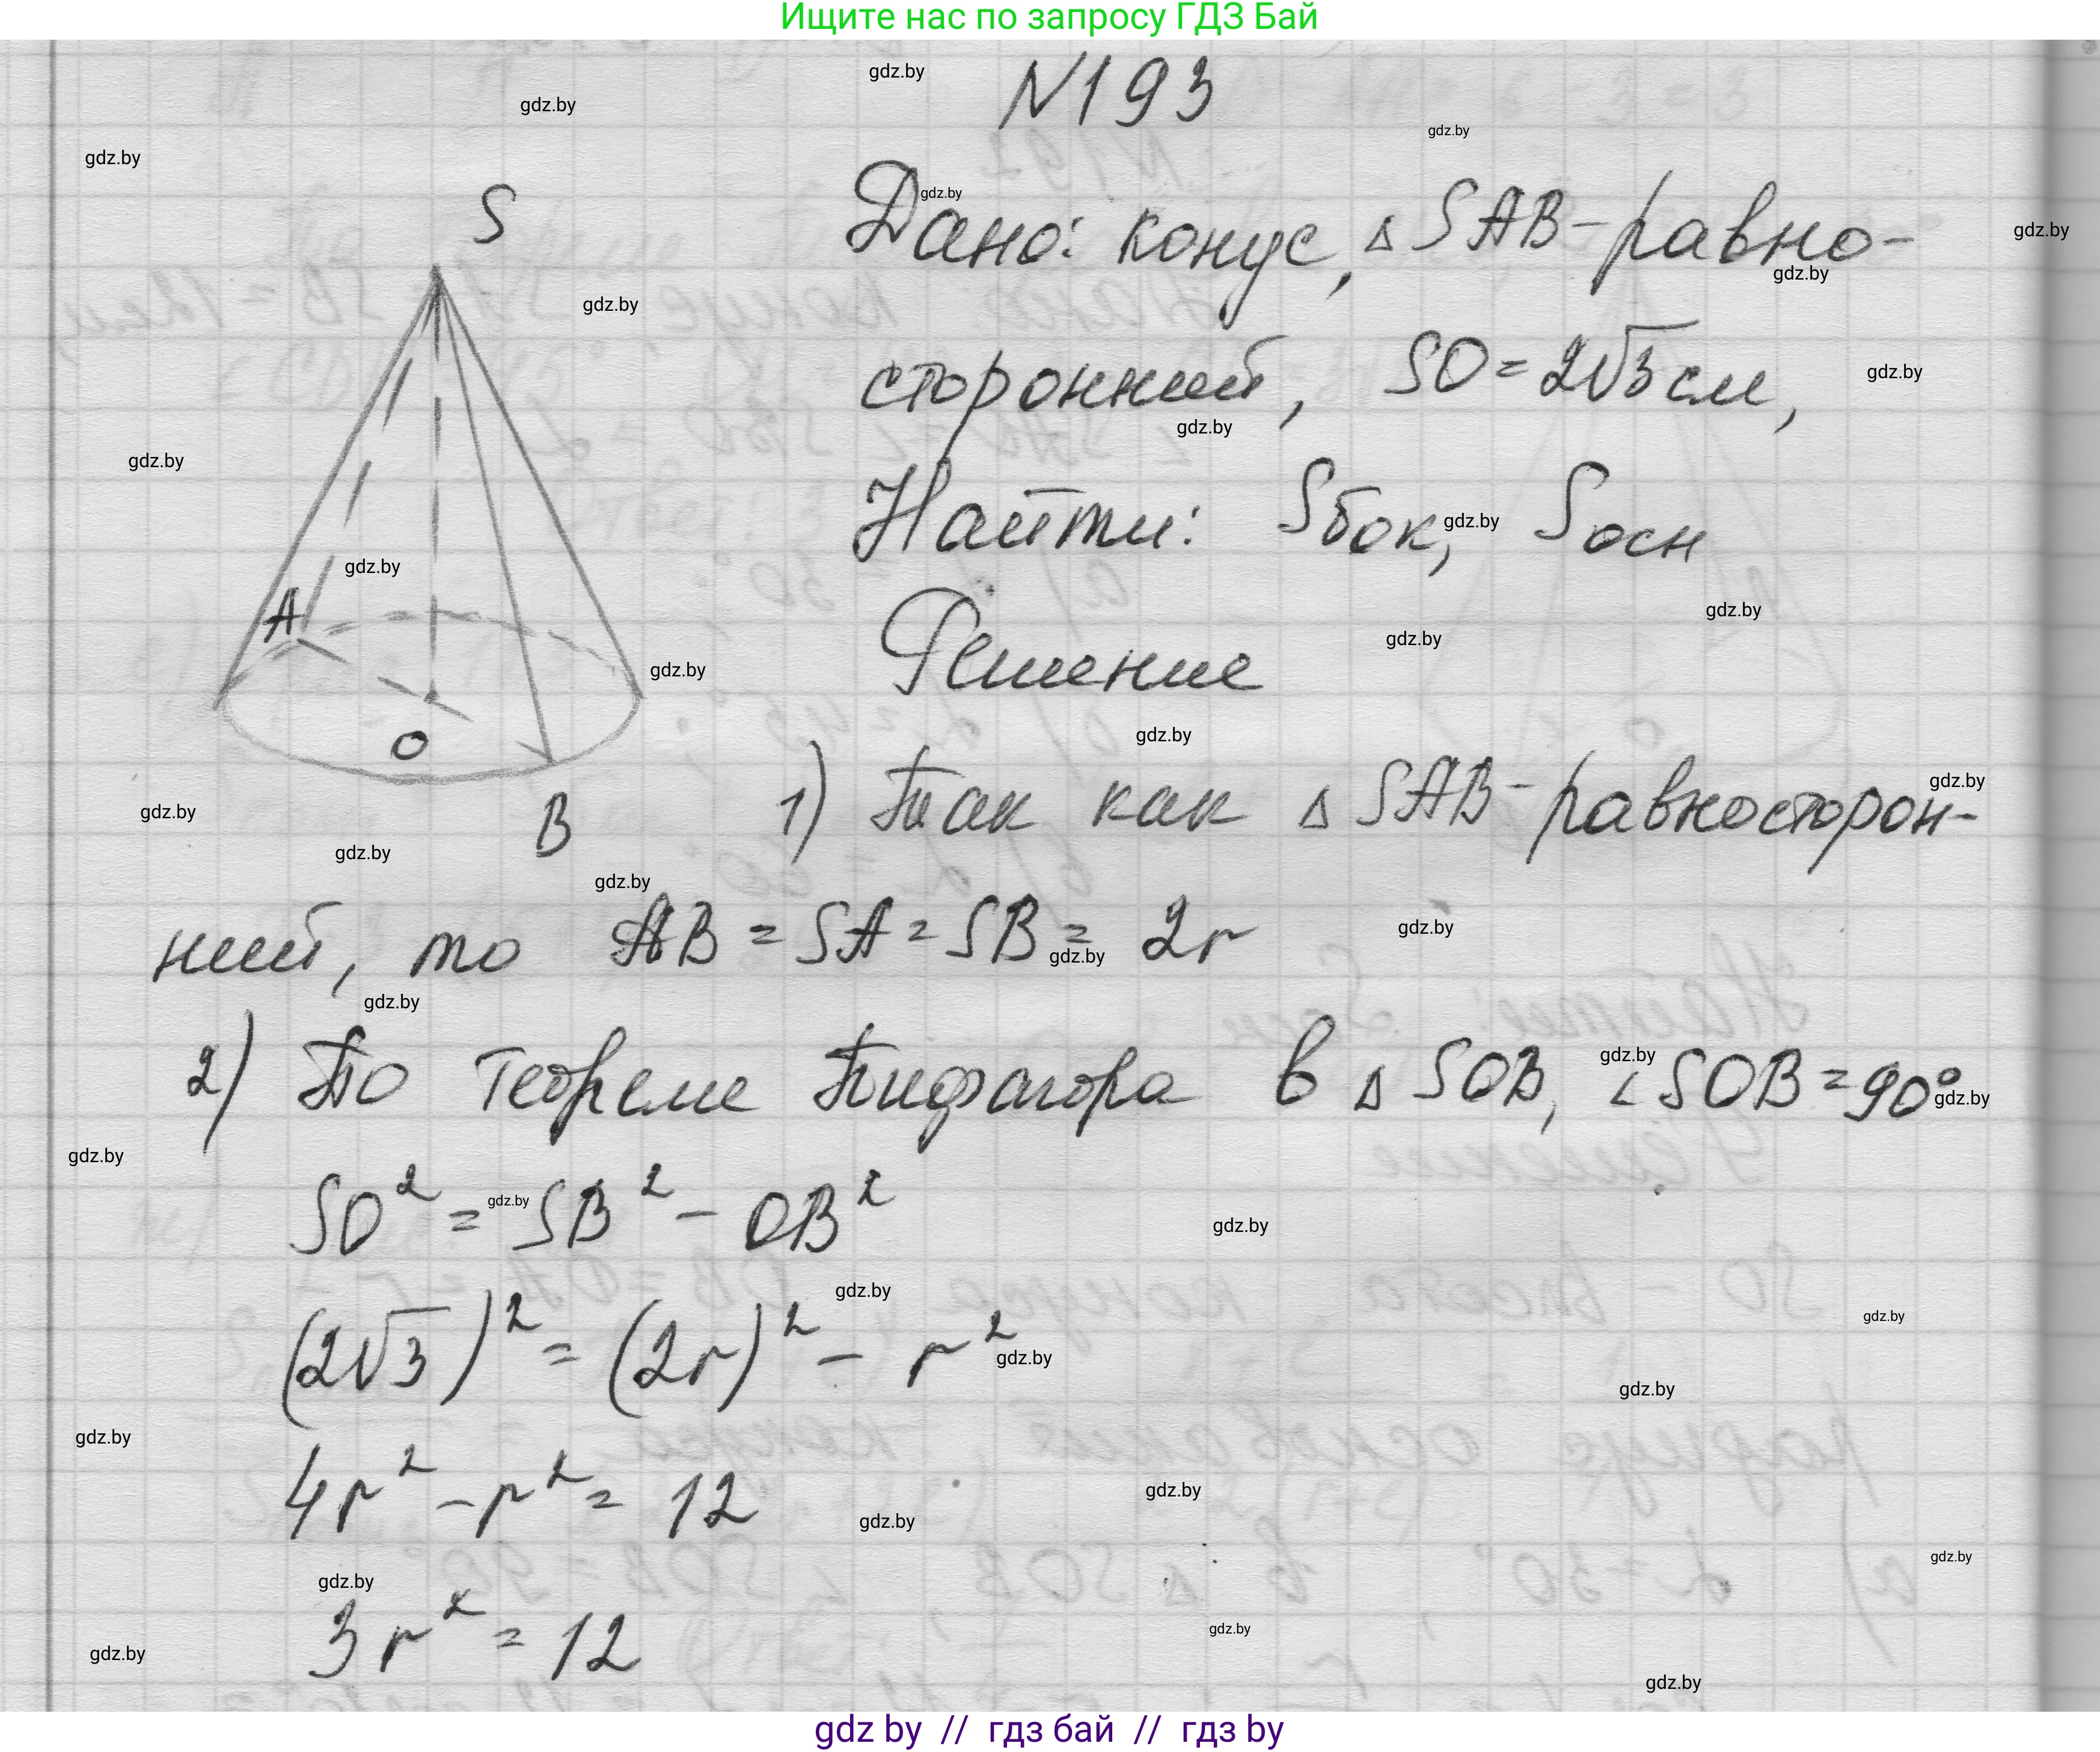 Ищите нас по запросу ГДЗ Бай
N193
S
Дано: конус, △ SAB - равно-
сторонний, SO = 2√3 см,
Найти: Sбок, Sосн
A
Решение
O
B
1) Так как △ SAB - равносторон-
ний, то AB = SA = SB = 2r
2) По теореме Пифагора в △ SOB, ∠SOB = 90°
SO² = SB² - OB²
(2√3)² = (2r)² - r²
4r² - r² = 12
3r² = 12
gdz by // гдз бай // гдз by